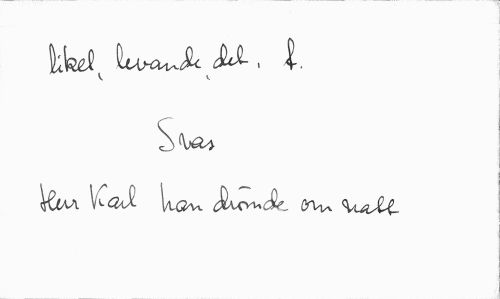 liket, levande, det. f.
Svas
Herr Karl han drömde om natt